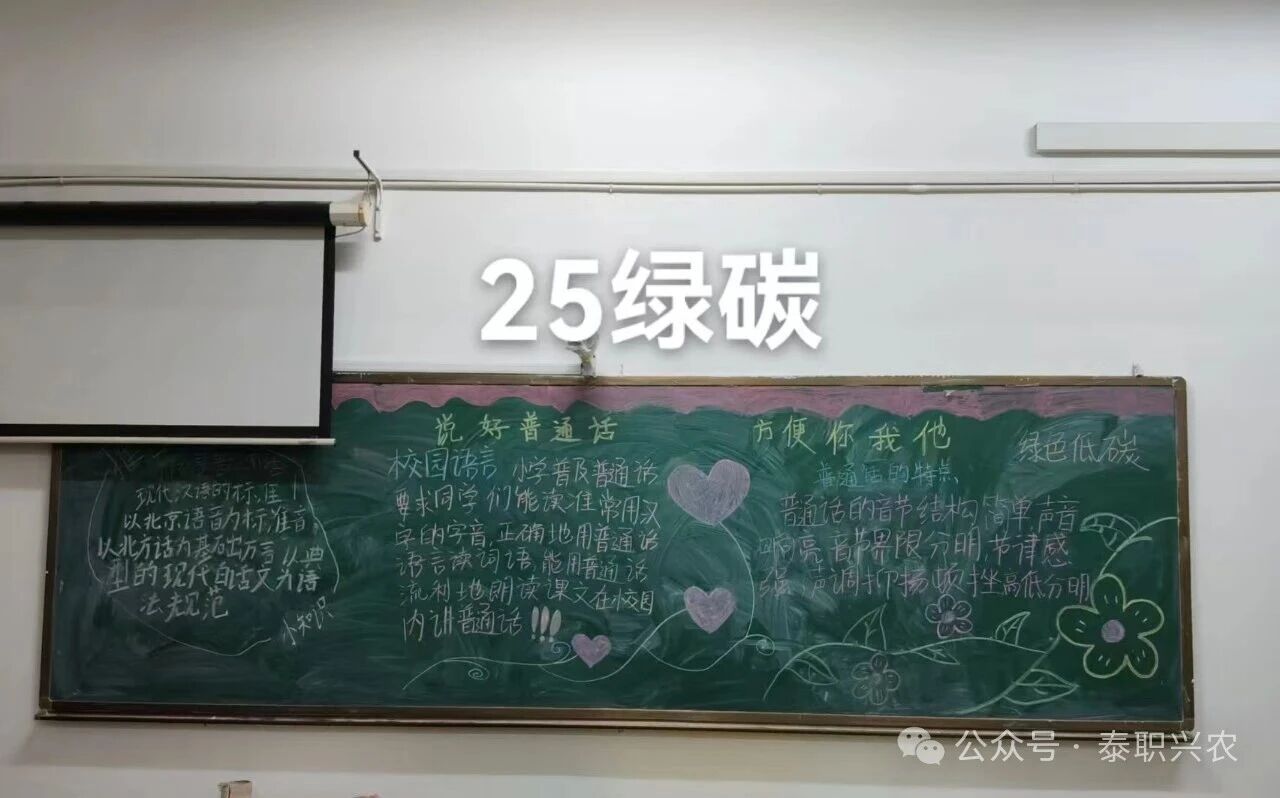 25绿碳
说好普通话
方便你我他
现代汉语的标准
以北京语音为标准音
以北方话为基础方言 以典
型的现代白话文为语
法规范
小知识
校园语言 小学普及普通话
要求同学们能读准常用汉
字的字音,正确地用普通话
语言读词语,能用普通话
流利地朗读课文在校园
内讲普通话!!!
绿色低碳
普通话的特点
普通话的音节结构简单声音
响亮音节界限分明节律感
强 声调抑扬顿挫高低分明
公众号·泰职兴农